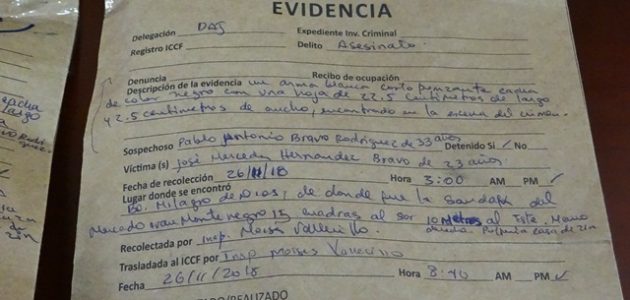 EVIDENCIA
Delegación DAJ Expediente Inv. Criminal
Registro ICCF Delito Asesinato
Denuncia Recibo de ocupación
Descripción de la evidencia un arma blanca corto punzante cacha
de color negro con una hoja de 22.5 centimetros de largo
y 2.5 centimetros de ancho, encontrado en la escena del crimen.
Sospechoso Pablo Antonio Bravo Rodriguez de 33 años Detenido Si ✓ No
Víctima (s) José Mercedes Hernandez Bravo de 23 años.
Fecha de recolección 26/11/18 Hora 3:00 AM PM ✓
Lugar donde se encontró
Bo. Milagro de Dios, de donde fue la del
Mercado Ivan Montenegro 15 cuadras al sur 10 al Este. Mano
casa de zin
Recolectada por Insp. Moises Vallecillo.
Trasladada al ICCF por Insp Moises Vallecillo
Fecha 26/11/2018 Hora 8:40 AM PM ✓